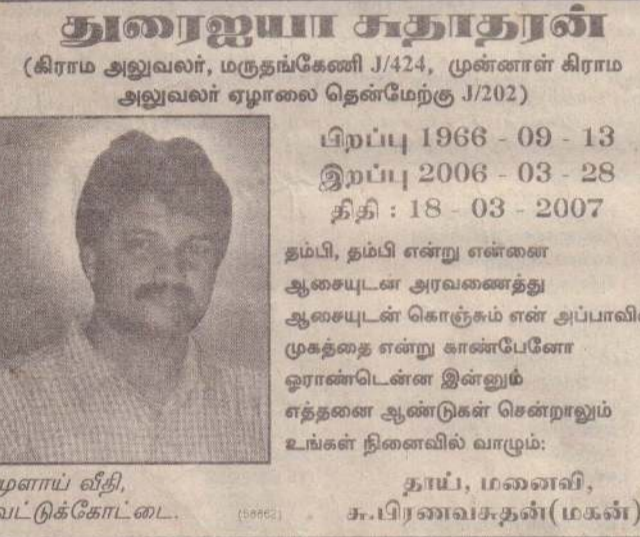 துரைஐயா சுதாதரன்
(கிராம அலுவலர், மருதங்கேணி J/424, முன்னாள் கிராம
அலுவலர் ஏழாலை தென்மேற்கு J/202)
பிறப்பு 1966 - 09 - 13
இறப்பு 2006 - 03 - 28
திதி : 18 - 03 - 2007
தம்பி, தம்பி என்று என்னை
ஆசையுடன் அரவணைத்து
ஆசையுடன் கொஞ்சும் என் அப்பாவின்
முகத்தை என்று காண்பேனோ
ஓராண்டென்ன இன்னும்
எத்தனை ஆண்டுகள் சென்றாலும்
உங்கள் நினைவில் வாழும்:
தாய், மனைவி,
சு.பிரணவசுதன்(மகன்)
மூளாய் வீதி,
வட்டுக்கோட்டை.
(58662)